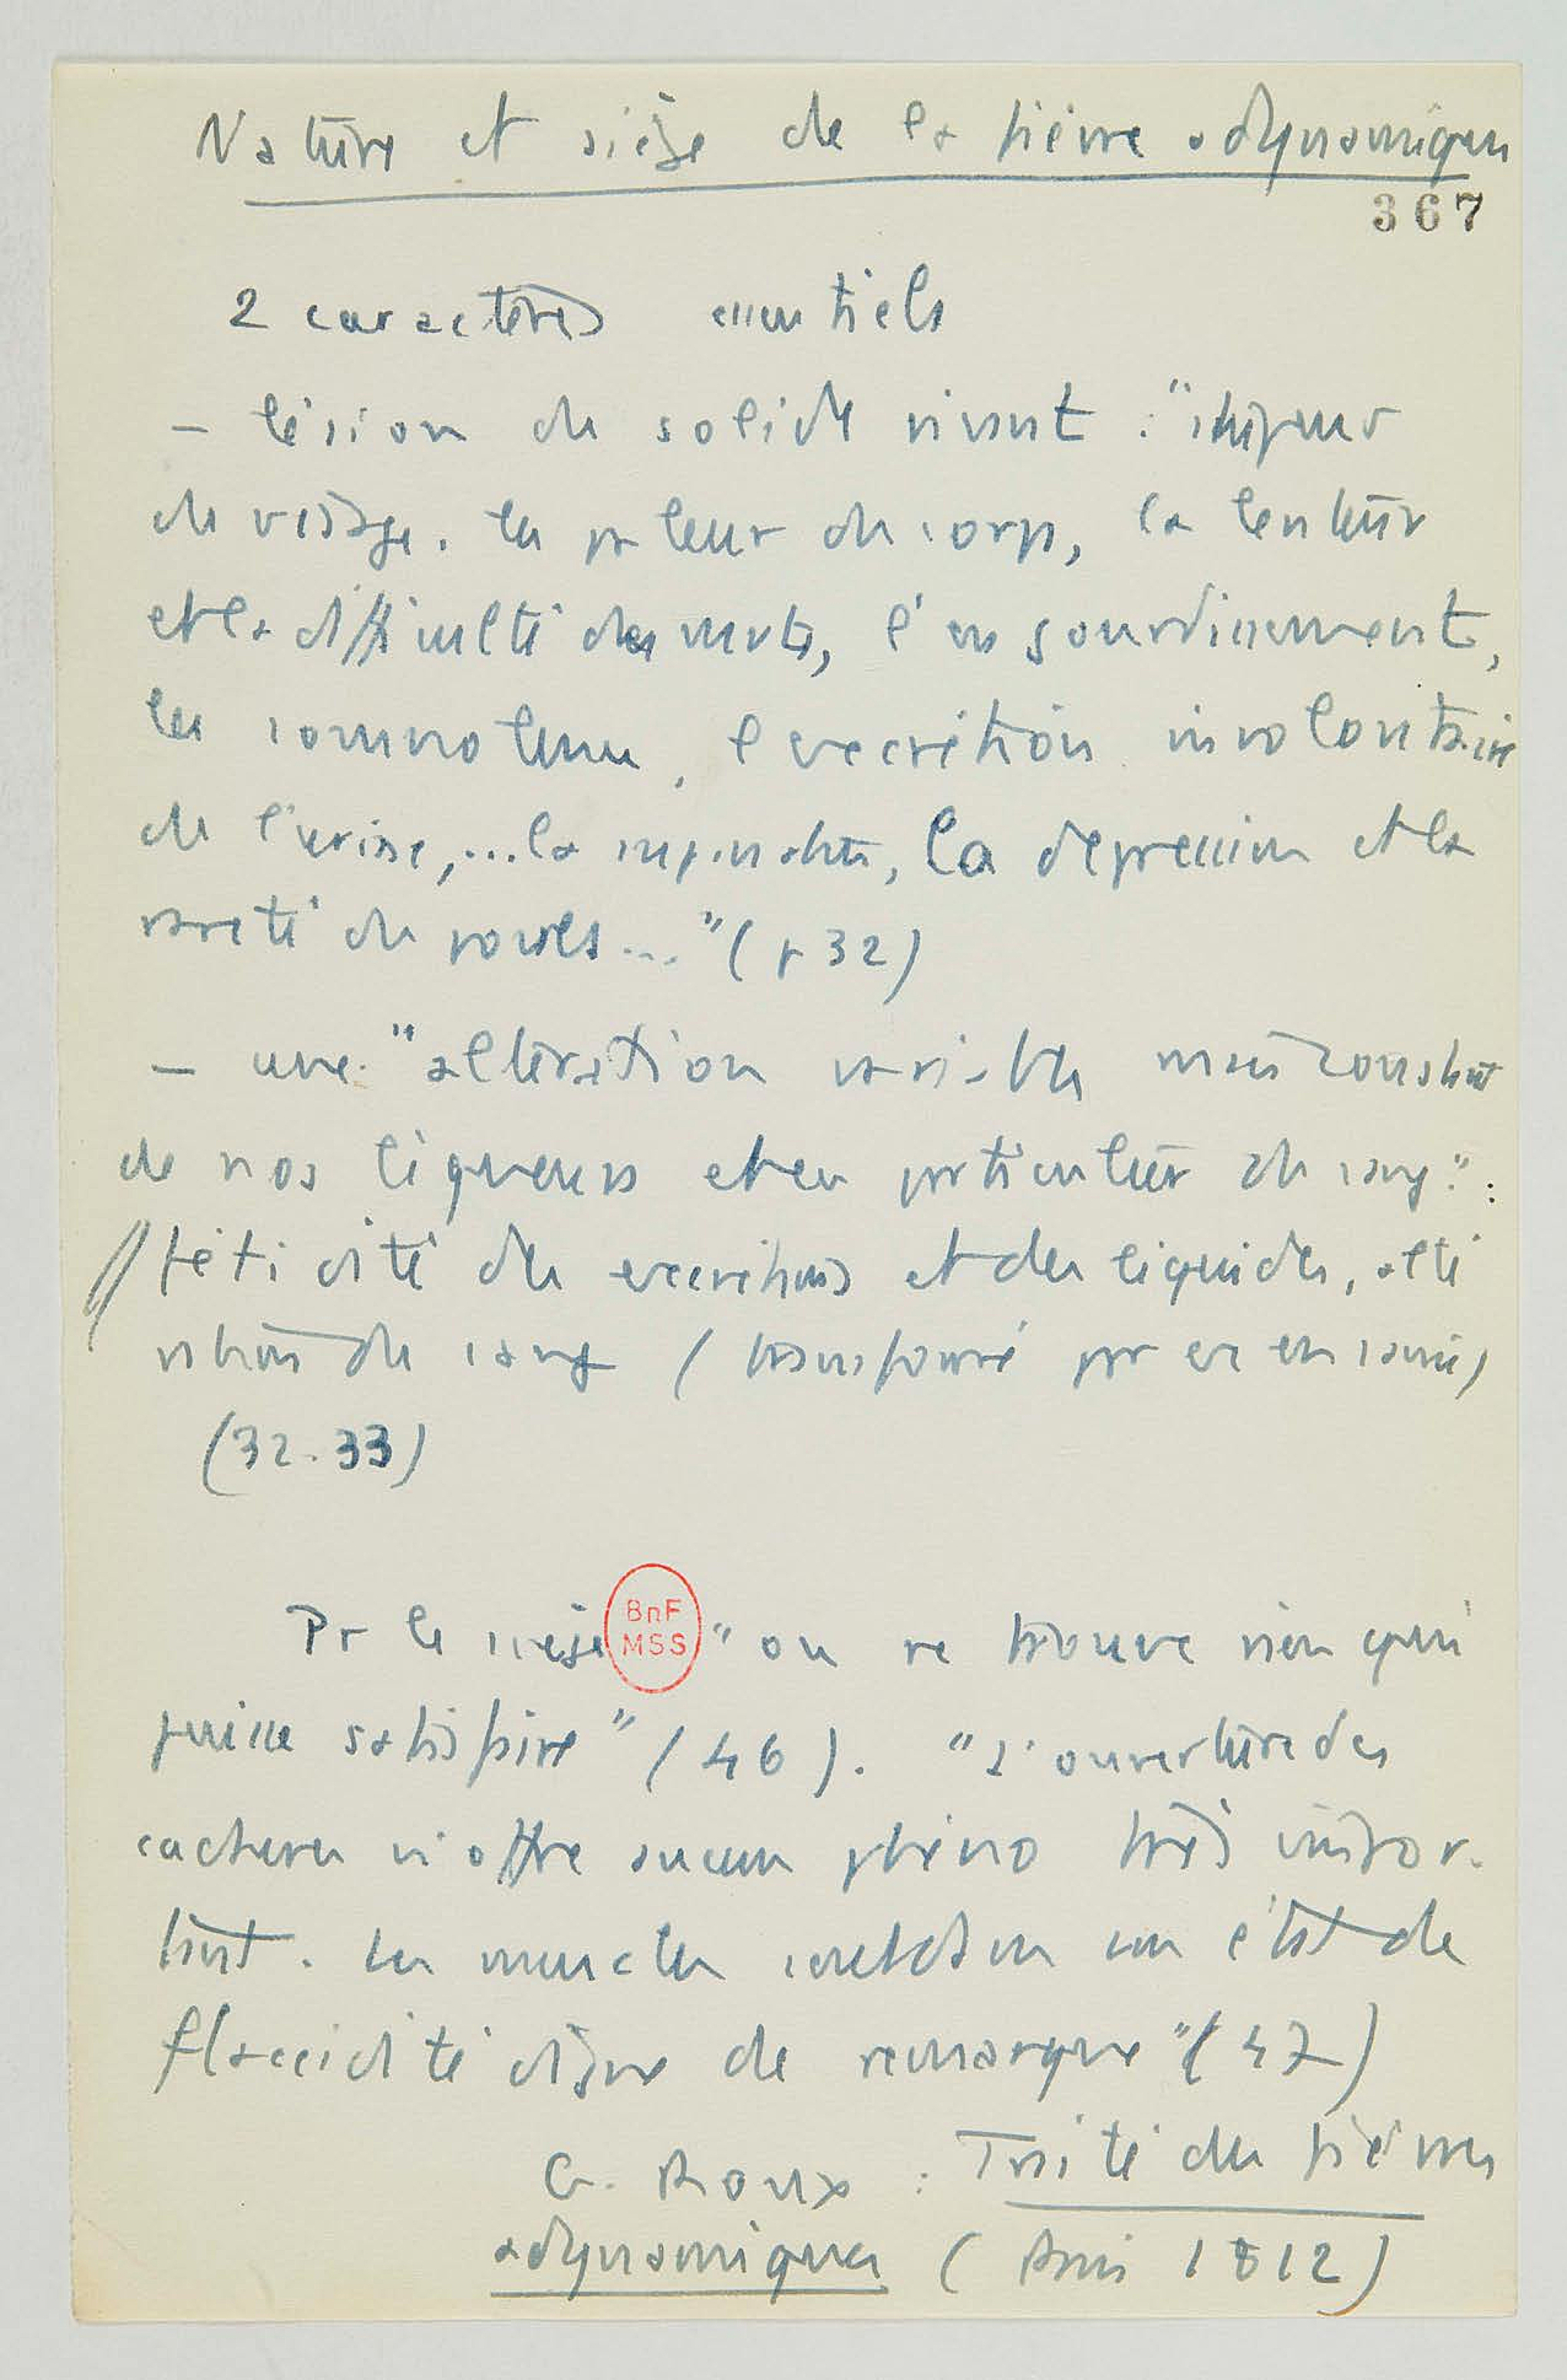 Nature et siège de la fièvre adynamique
367
2 caractères essentiels
– lésion du solide vivant : "stupeur
du visage. la pâleur du corps, la lenteur
et la difficulté des mvts, l'engourdissement,
la somnolence, l'excrétion involontaire
de l'urine,... la respiration, la dépression et la
rareté du pouls..." (p 32)
– une "altération variable mais constante
de nos liqueurs et en particulier du sang" :
fétidité des excrétions et des liquides, alté
ration du sang (transformé par ex en sanie)
(32-33)
Pr le siège "on ne trouve rien qui
BnF
MSS
puisse satisfaire" (46). "L'ouverture des
cadavres n'offre aucun phéno très impor-
tant. Les muscles sont dans un état de
flaccidité digne de remarque" (47)
G. Roux : Traité des fièvres
adynamiques (Paris 1812)